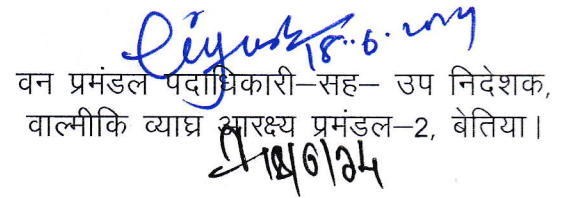 18.6.2024
वन प्रमंडल पदाधिकारी–सह– उप निदेशक,
वाल्मीकि व्याघ्र आरक्ष्य प्रमंडल–2, बेतिया।
18/6/24